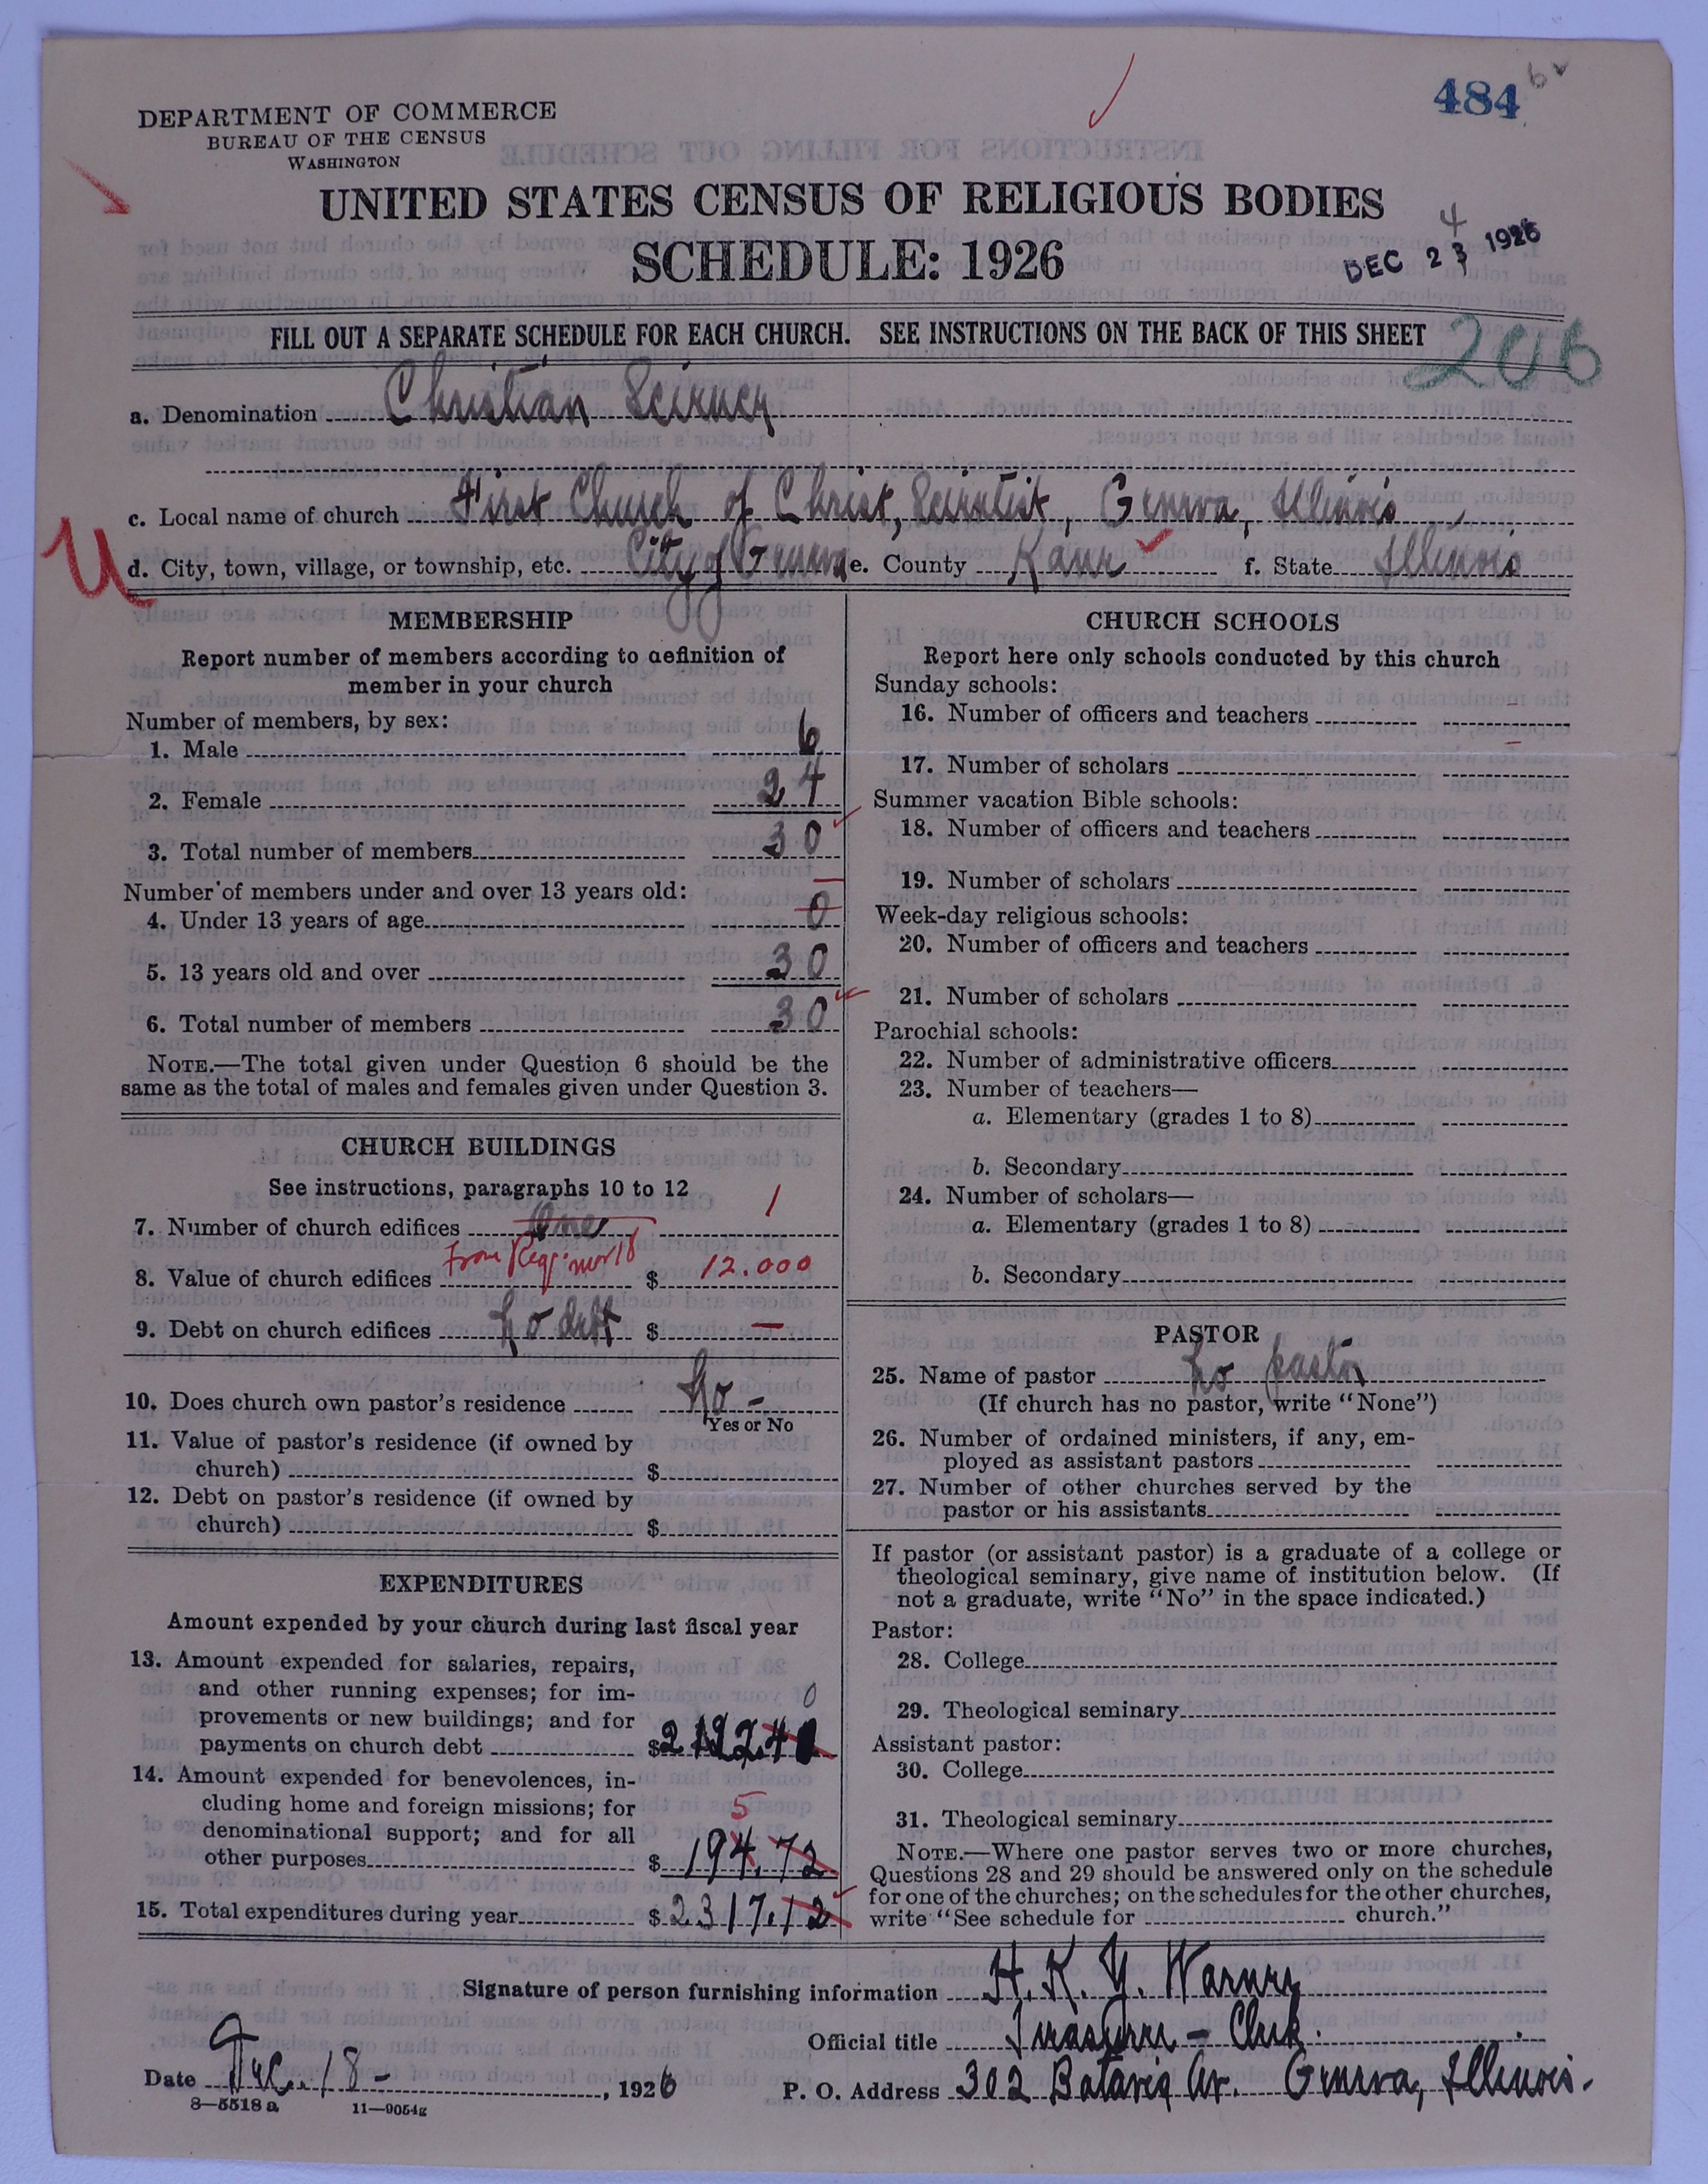 484
DEPARTMENT OF COMMERCE
BUREAU OF THE CENSUS
WASHINGTON
UNITED STATES CENSUS OF RELIGIOUS BODIES
SCHEDULE: 1926
4
DEC 23 1926
FILL OUT A SEPARATE SCHEDULE FOR EACH CHURCH. SEE INSTRUCTIONS ON THE BACK OF THIS SHEET
206
a. Denomination Christian Science
c. Local name of church First Church of Christ, Scientist, Geneva, Illinois
U
d. City, town, village, or township, etc. City of Geneva e. County Kane f. State Illinois
MEMBERSHIP
Report number of members according to definition of
member in your church
Number of members, by sex:
1. Male 6
2. Female 24
3. Total number of members 30
Number of members under and over 13 years old:
4. Under 13 years of age 0
5. 13 years old and over 30
6. Total number of members 30
NOTE.—The total given under Question 6 should be the
same as the total of males and females given under Question 3.
CHURCH BUILDINGS
See instructions, paragraphs 10 to 12
7. Number of church edifices One 1
8. Value of church edifices From $ 12.000
9. Debt on church edifices No debt $ —
10. Does church own pastor's residence No -
Yes or No
11. Value of pastor's residence (if owned by
church) $
12. Debt on pastor's residence (if owned by
church) $
EXPENDITURES
Amount expended by your church during last fiscal year
13. Amount expended for salaries, repairs,
and other running expenses; for im-
provements or new buildings; and for
payments on church debt $ 2122.40
14. Amount expended for benevolences, in-
cluding home and foreign missions; for
denominational support; and for all 5
other purposes $ 194.72
15. Total expenditures during year $ 2317.12
CHURCH SCHOOLS
Report here only schools conducted by this church
Sunday schools:
16. Number of officers and teachers
17. Number of scholars
Summer vacation Bible schools:
18. Number of officers and teachers
19. Number of scholars
Week-day religious schools:
20. Number of officers and teachers
21. Number of scholars
Parochial schools:
22. Number of administrative officers
23. Number of teachers—
a. Elementary (grades 1 to 8)
b. Secondary
24. Number of scholars—
a. Elementary (grades 1 to 8)
b. Secondary
PASTOR
25. Name of pastor No pastor
(If church has no pastor, write "None")
26. Number of ordained ministers, if any, em-
ployed as assistant pastors
27. Number of other churches served by the
pastor or his assistants
If pastor (or assistant pastor) is a graduate of a college or
theological seminary, give name of institution below. (If
not a graduate, write "No" in the space indicated.)
Pastor:
28. College
29. Theological seminary
Assistant pastor:
30. College
31. Theological seminary
NOTE.—Where one pastor serves two or more churches,
Questions 28 and 29 should be answered only on the schedule
for one of the churches; on the schedules for the other churches,
write "See schedule for church."
Signature of person furnishing information H. K. Y. Warner
Official title Treasurer - Clerk.
Date Dec. 18 - , 1926 P. O. Address 302 Batavia Av. Geneva, Illinois.
8—5518 a 11—9054g